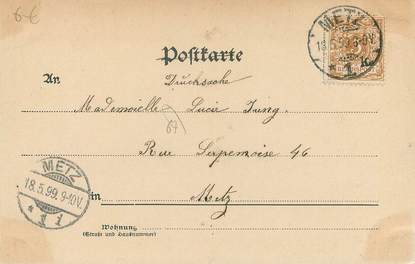 6-€
METZ
18.5.99.9-10V.
* 1 k.
Postkarte
An Drucksache
Mademoiselle Lucie Jung
67
Rue Serpenoise 46
in Metz
METZ
18.5.99.9-10V.
* 1 i
Wohnung
(Straße und Hausnummer)